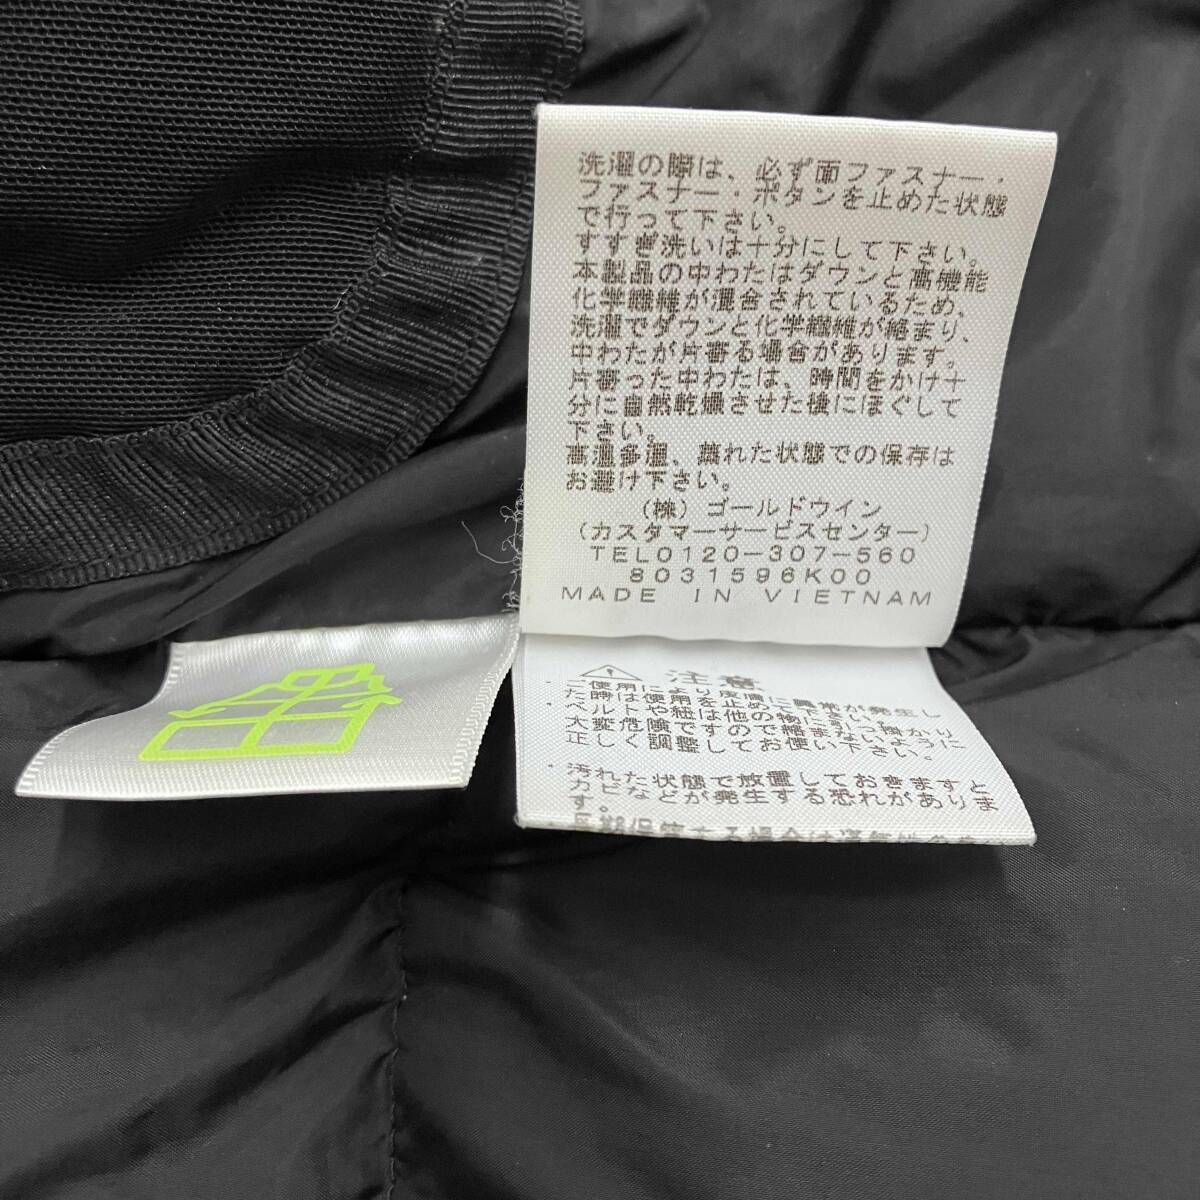 洗濯の際は、必ず面ファスナー・
ファスナー・ボタンを止めた状態
で行って下さい。
すすぎ洗いは十分にして下さい。
本製品の中わたはダウンと高機能
化学繊維が混合されているため、
洗濯でダウンと化学繊維が絡まり、
中わたが片寄る場合があります。
片寄った中わたは、時間をかけ十
分に自然乾燥させた後にほぐして
下さい。
高温多湿、蒸れた状態での保存は
お避け下さい。
(株)ゴールドウイン
(カスタマーサービスセンター)
TEL0120-307-560
8031596K00
MADE IN VIETNAM
注意
・ご使用により皮膚に異常が発生し
た時は使用を止めて下さい。
・ベルトや紐は他の物に引っ掛かり
大変危険ですので絡まないように
正しく調整してお使い下さい。
・汚れた状態で放置しておきますと
カビなどが発生する恐れがありま
す。